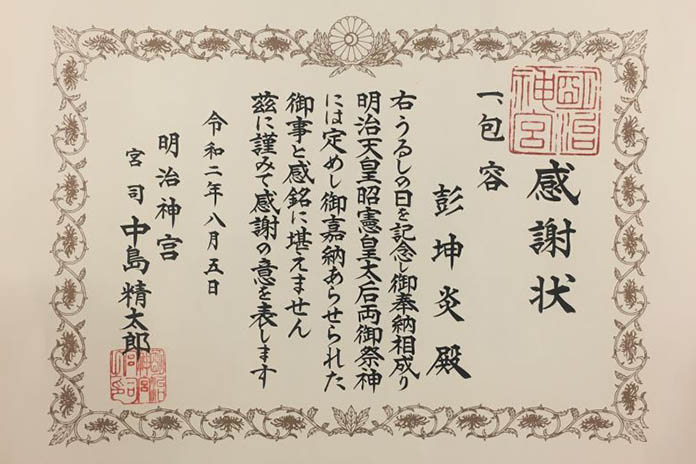 感謝状
一、包容
彭坤炎殿
右うるしの日を記念し御奉納相成り
明治天皇昭憲皇太后両御祭神
には定めし御嘉納あらせられた
御事と感銘に堪えません
茲に謹みて感謝の意を表します
令和二年八月五日
明治神宮
宮司 中島精太郎
明治神宮